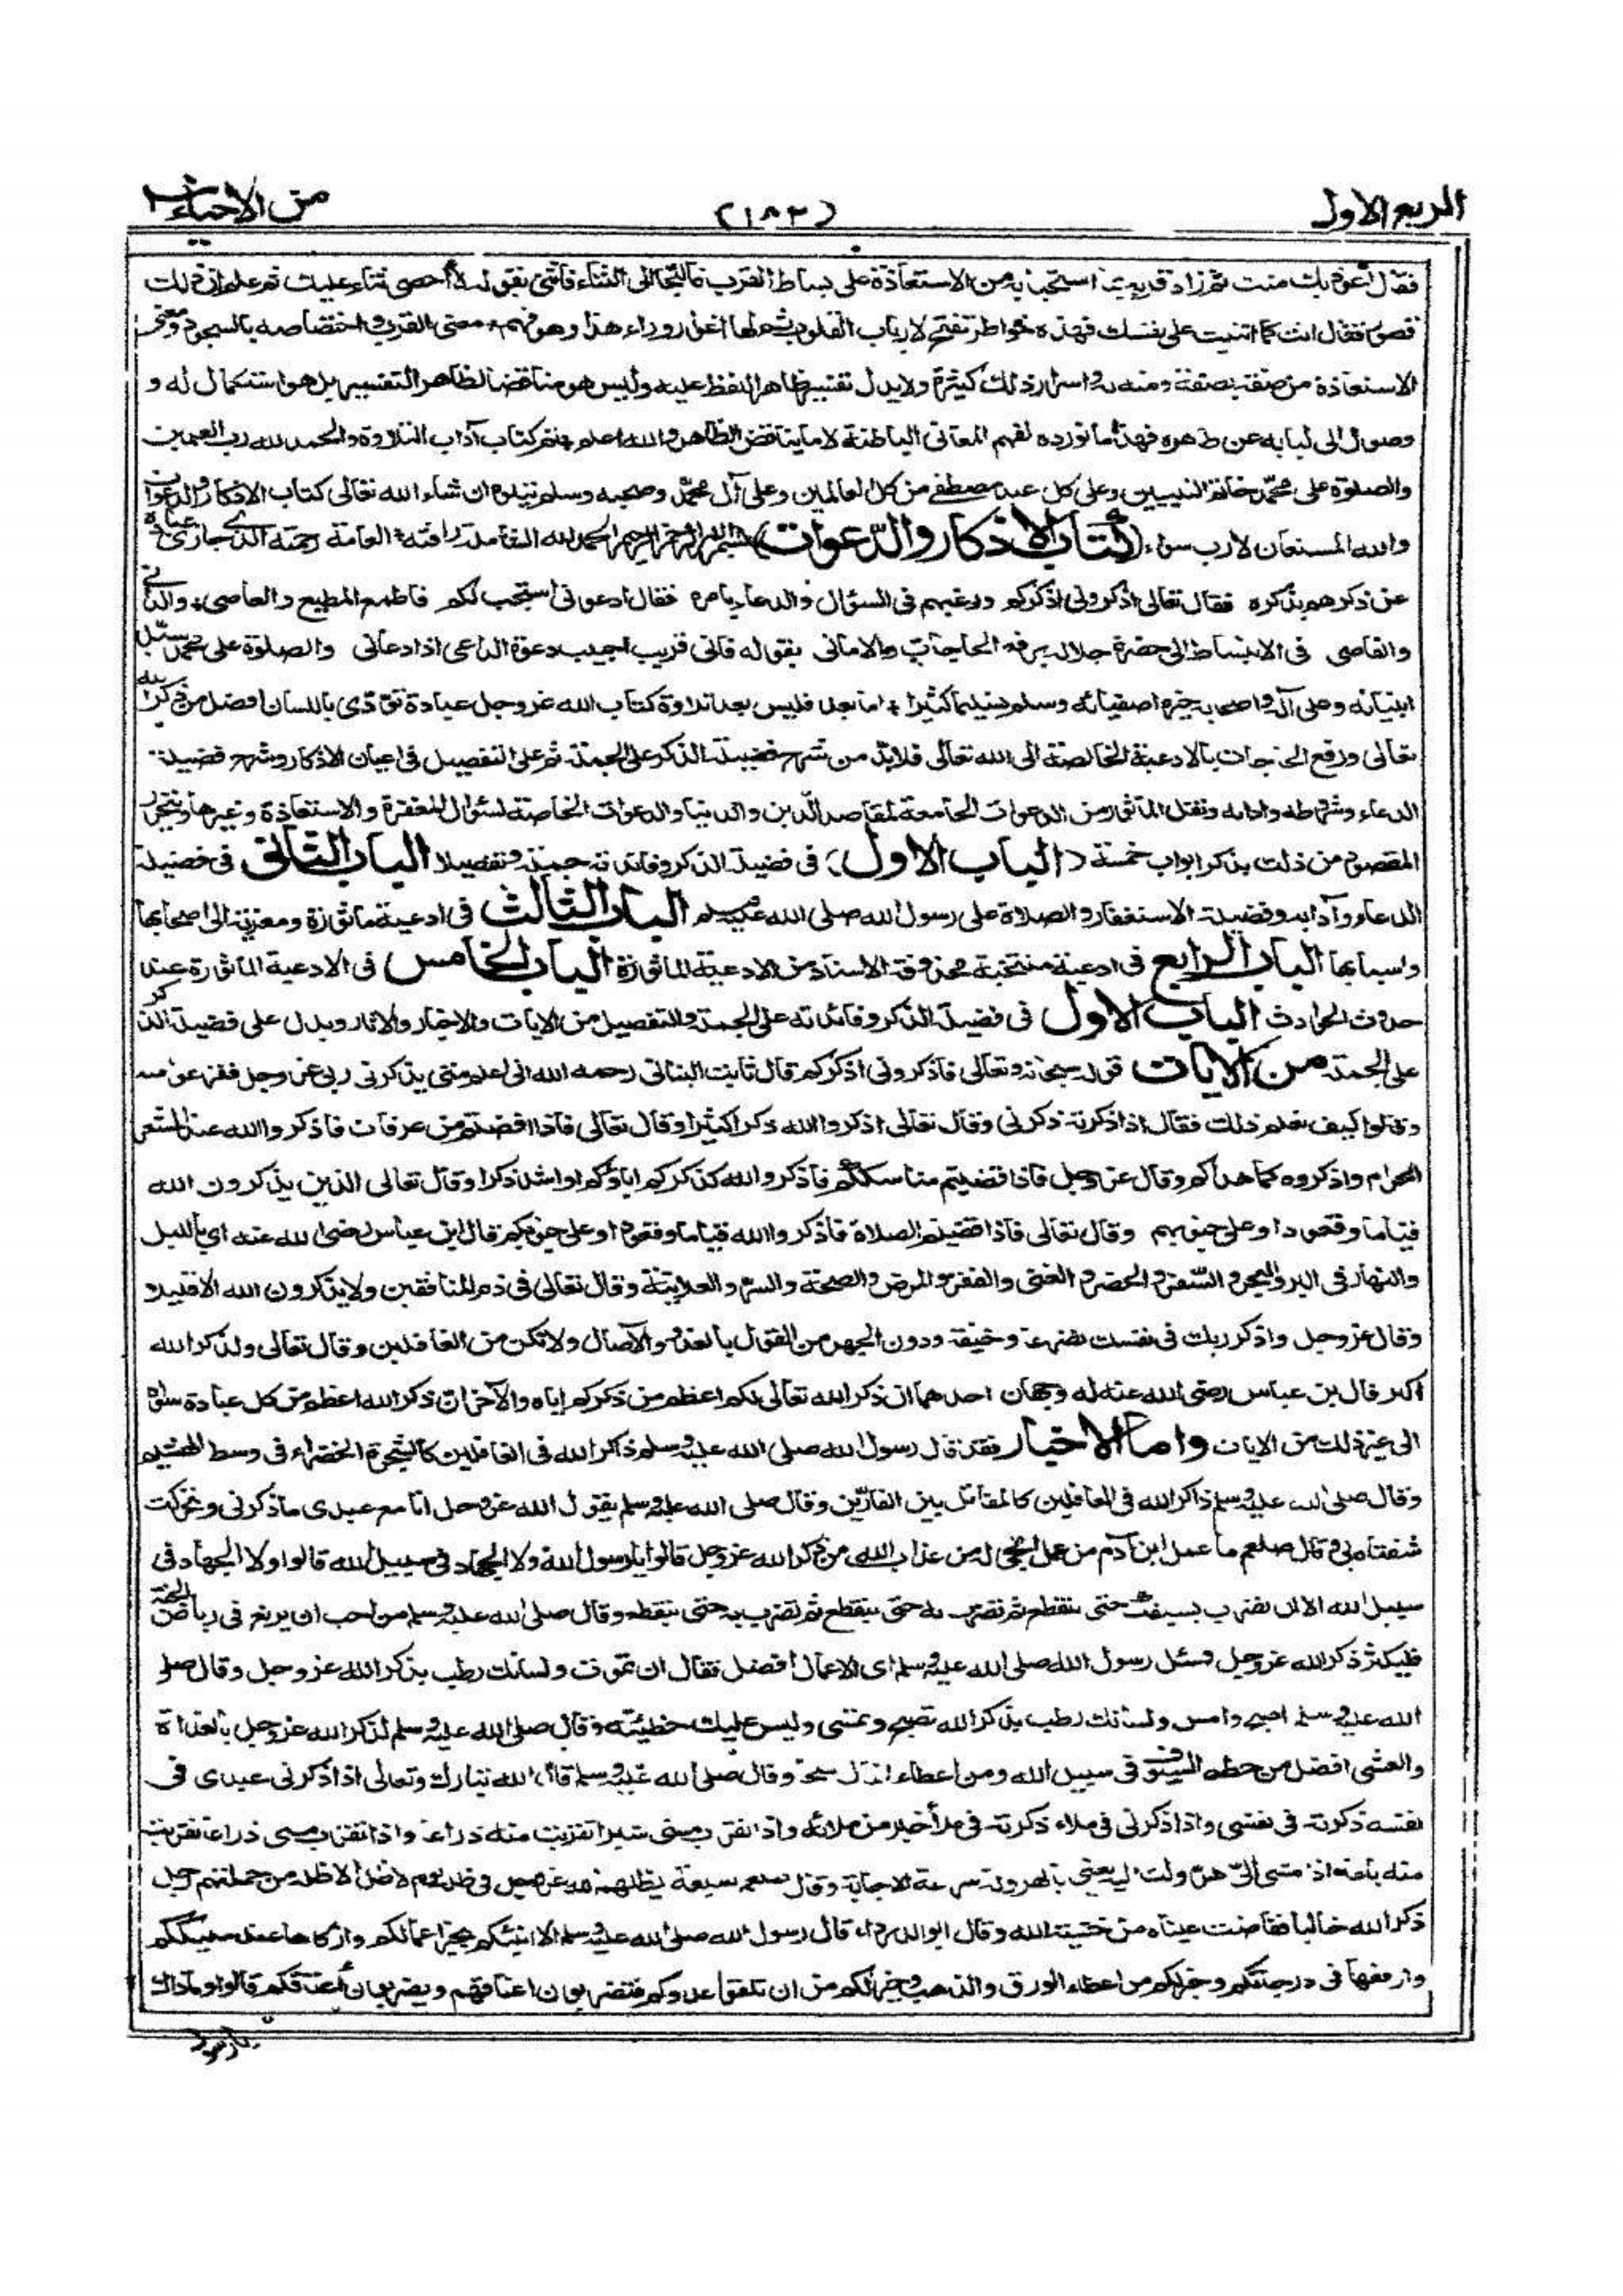 الربع الاول
(١٨٣)
من الاحياء
فقال اعوذ بك منك ثم زاد قربه بما استحيى به من الاستعاذة على بساط القرب فالتجأ الى الثناء فاثنى بقوله لا أحصى ثناء عليك ثم علم ان ذلك
قصور فقال انت كما اثنيت على نفسك فهذه خواطر تفتح لارباب القلوب ثم لها اغوار وراء هذا وهو فهم معنى القرب و اختصاصه بالسجود ومعنى
الاستعاذة من صفة بصفة ومنه به واسرار ذلك كثيرة ولا يدل تفسير ظاهر اللفظ عليه وليس هو مناقضا لظاهر التفسير بل هو استكمال له و
وصول الى لبابه عن ظاهره فهذا ما نورده لفهم المعانى الباطنة لا ما يناقض الظاهر والله اعلم تم كتاب آداب التلاوة والحمد لله رب العلمين
والصلوة على محمد خاتم النبيين وعلى كل عبد مصطفى من كل العالمين وعلى آل محمد وصحبه وسلم يتلوه ان شاء الله تعالى كتاب الاذكار والدعوات
والله المستعان لا رب سواه (كتاب الاذكار والدعوات) بسم الله الرحمن الرحيم الحمد لله الشاملة رافته العامة رحمته الذى جازى عباده
عن ذكرهم بذكره فقال تعالى اذكرونى اذكركم ورغبهم فى السؤال والدعاء بامره فقال ادعونى استجب لكم فاطمع المطيع والعاصى والدانى
والقاصى فى الانبساط الى حضرة جلاله برفع الحاجات والامانى بقوله فانى قريب اجيب دعوة الداعى اذا دعانى والصلوة على محمد سيد
انبيائه وعلى آله واصحابه خيرة اصفيائه وسلم تسليما كثيرا اما بعد فليس بعد تلاوة كتاب الله عز وجل عبادة تؤدى باللسان افضل من ذكر الله
تعالى ورفع الحاجات بالادعية الخالصة الى الله تعالى فلا بد من شرح فضيلة الذكر على الجملة ثم على التفصيل فى اعيان الاذكار وشرح فضيلة
الدعاء وشروطه وادابه ونقل الماثور من الدعوات الجامعة لمقاصد الدين والدنيا والدعوات الخاصة لسؤال المغفرة والاستعاذة وغيرها ويتحرر
المقصود من ذلك بذكر ابواب خمسة (الباب الاول) فى فضيلة الذكر وفائدته جملة وتفصيلا الباب الثانى فى فضيلة
الدعاء وآدابه وفضيلة الاستغفار والصلاة على رسول الله صلى الله عليه وسلم الباب الثالث فى ادعية ماثورة ومعزية الى اصحابها
واسبابها الباب الرابع فى ادعية منتخبة محذوفة الاسناد من الادعية الماثورة الباب الخامس فى الادعية الماثورة عند
حدوث الحوادث الباب الاول فى فضيلة الذكر وفائدته على الجملة والتفصيل من الايات والاخبار والاثار ويدل على فضيلة الذكر
على الجملة من الايات قوله سبحانه وتعالى فاذكرونى اذكركم قال ثابت البنانى رحمه الله انى اعلم متى يذكرنى ربى عز وجل ففزعوا منه
وقالوا كيف تعلم ذلك فقال اذا ذكرته ذكرنى وقال تعالى اذكروا الله ذكرا كثيرا وقال تعالى فاذا افضتم من عرفات فاذكروا الله عند المشعر
الحرام واذكروه كما هداكم وقال عز وجل فاذا قضيتم مناسككم فاذكروا الله كذكركم اباؤكم او اشد ذكرا وقال تعالى الذين يذكرون الله
قياما وقعودا وعلى جنوبهم وقال تعالى فاذا قضيتم الصلاة فاذكروا الله قياما وقعودا وعلى جنوبكم قال ابن عباس رضى الله عنه اى بالليل
والنهار فى البر والبحر والسفر والحضر والغنى والفقر والمرض والصحة والسر والعلانية وقال تعالى فى ذم المنافقين ولا يذكرون الله الا قليلا
وقال عز وجل واذكر ربك فى نفسك تضرعا وخيفة ودون الجهر من القول بالغدو والآصال ولا تكن من الغافلين وقال تعالى ولذكر الله
اكبر قال بن عباس رضى الله عنه له وجهان احدهما ان ذكر الله تعالى لكم اعظم من ذكركم اياه والآخر ان ذكر الله اعظم من كل عبادة سواه
الى غير ذلك من الايات واما الاخبار فقد قال رسول الله صلى الله عليه وسلم ذاكر الله فى الغافلين كالشجرة الخضراء فى وسط الهشيم
وقال صلى الله عليه وسلم ذاكر الله فى الغافلين كالمقاتل بين الفارين وقال صلى الله عليه وسلم يقول الله عز وجل انا مع عبدى ما ذكرنى وتحركت
شفتاه بى وقال صلعم ما عمل ابن آدم من عمل انجى له من عذاب الله من ذكر الله عز وجل قالوا يا رسول الله ولا الجهاد فى سبيل الله قالوا ولا الجهاد فى
سبيل الله الا ان تضرب بسيفك حتى ينقطع ثم تضرب به حتى ينقطع ثم تضرب به حتى ينقطع وقال صلى الله عليه وسلم من احب ان يرتع فى رياض الجنة
فليكثر ذكر الله عز وجل وسئل رسول الله صلى الله عليه وسلم اى الاعمال افضل فقال ان تموت ولسانك رطب بذكر الله عز وجل وقال صلى
الله عليه وسلم اصبح وامس ولسانك رطب بذكر الله تصبح وتمسى وليس عليك خطيئة وقال صلى الله عليه وسلم لذكر الله عز وجل بالغداة
والعشى افضل من حطم السيوف فى سبيل الله ومن اعطاء المال سحا وقال صلى الله عليه وسلم قال الله تبارك وتعالى اذا ذكرنى عبدى فى
نفسه ذكرته فى نفسى واذا ذكرنى فى ملاء ذكرته فى ملأ خير من ملائه واذا تقرب منى شبرا تقربت منه ذراعا واذا تقرب منى ذراعا تقربت
منه باعا واذا مشى الى هرولت اليه يعنى بالهرولة سرعة الاجابة وقال صلعم سبعة يظلهم الله عز وجل فى ظله يوم لا ظل الا ظله من جملتهم رجل
ذكر الله خاليا ففاضت عيناه من خشية الله وقال ابو الدرداء قال رسول الله صلى الله عليه وسلم الا انبئكم بخير اعمالكم وازكاها عند مليككم
وارفعها فى درجاتكم وخير لكم من اعطاء الورق والذهب وخير لكم من ان تلقوا عدوكم فتضربون اعناقهم ويضربون أعناقكم قالوا وماذاك
يا رسول